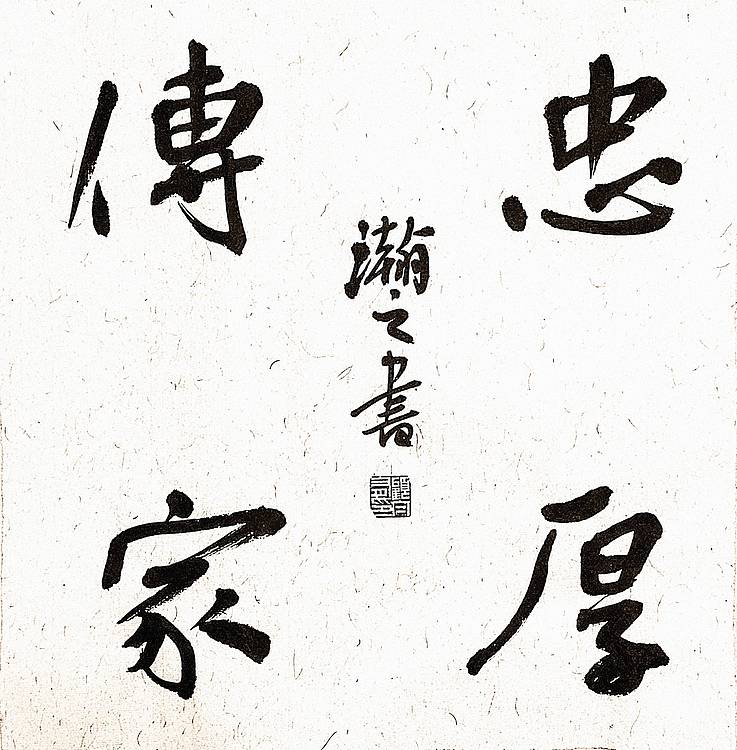 忠厚
傳家
瀚之書